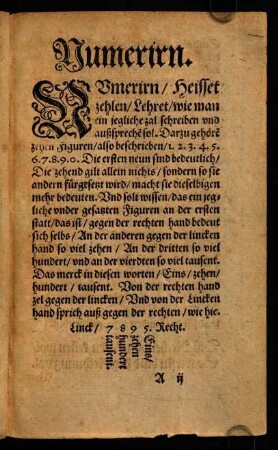 Numerirn.
NVmerirn / Heisset
zehlen / Lehret / wie man
ein jegliche zal schreiben vnd
außspreche sol. Darzu gehörẽ
zehen Figuren / also beschrieben / 1. 2. 3. 4. 5.
6. 7. 8. 9. 0. Die ersten neun sind bedeutlich /
Die zehend gilt allein nichts / sondern so sie
andern fürgesezt wird / macht sie dieselbigen
mehr bedeuten. Vnd solt wissen / das ein jeg-
liche vnder gesatzten Figuren an der ersten
statt / das ist / gegen der rechten hand bedeut
sich selbs / An der anderen gegen der lincken
hand so viel zehen / An der dritten so viel
hundert / vnd an der vierdten so viel tausent.
Das merck in diesen worten / Eins / zehen /
hundert / tausent. Von der rechten hand
zel gegen der lincken / Vnd von der Lincken
hand sprich auß gegen der rechten / wie hie.
Linck / 7 8 9 5. Recht.
Eins /
zehen
hundert
tausent.
A ij